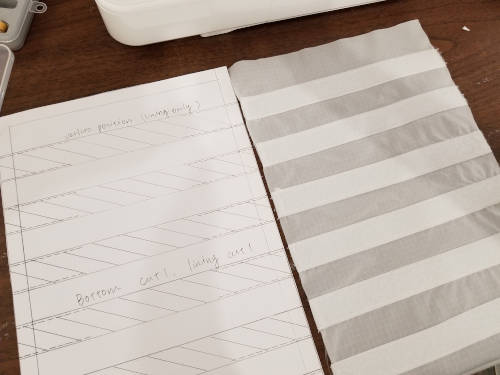 position (lining only)
Bottom cut 1, lining cut 1